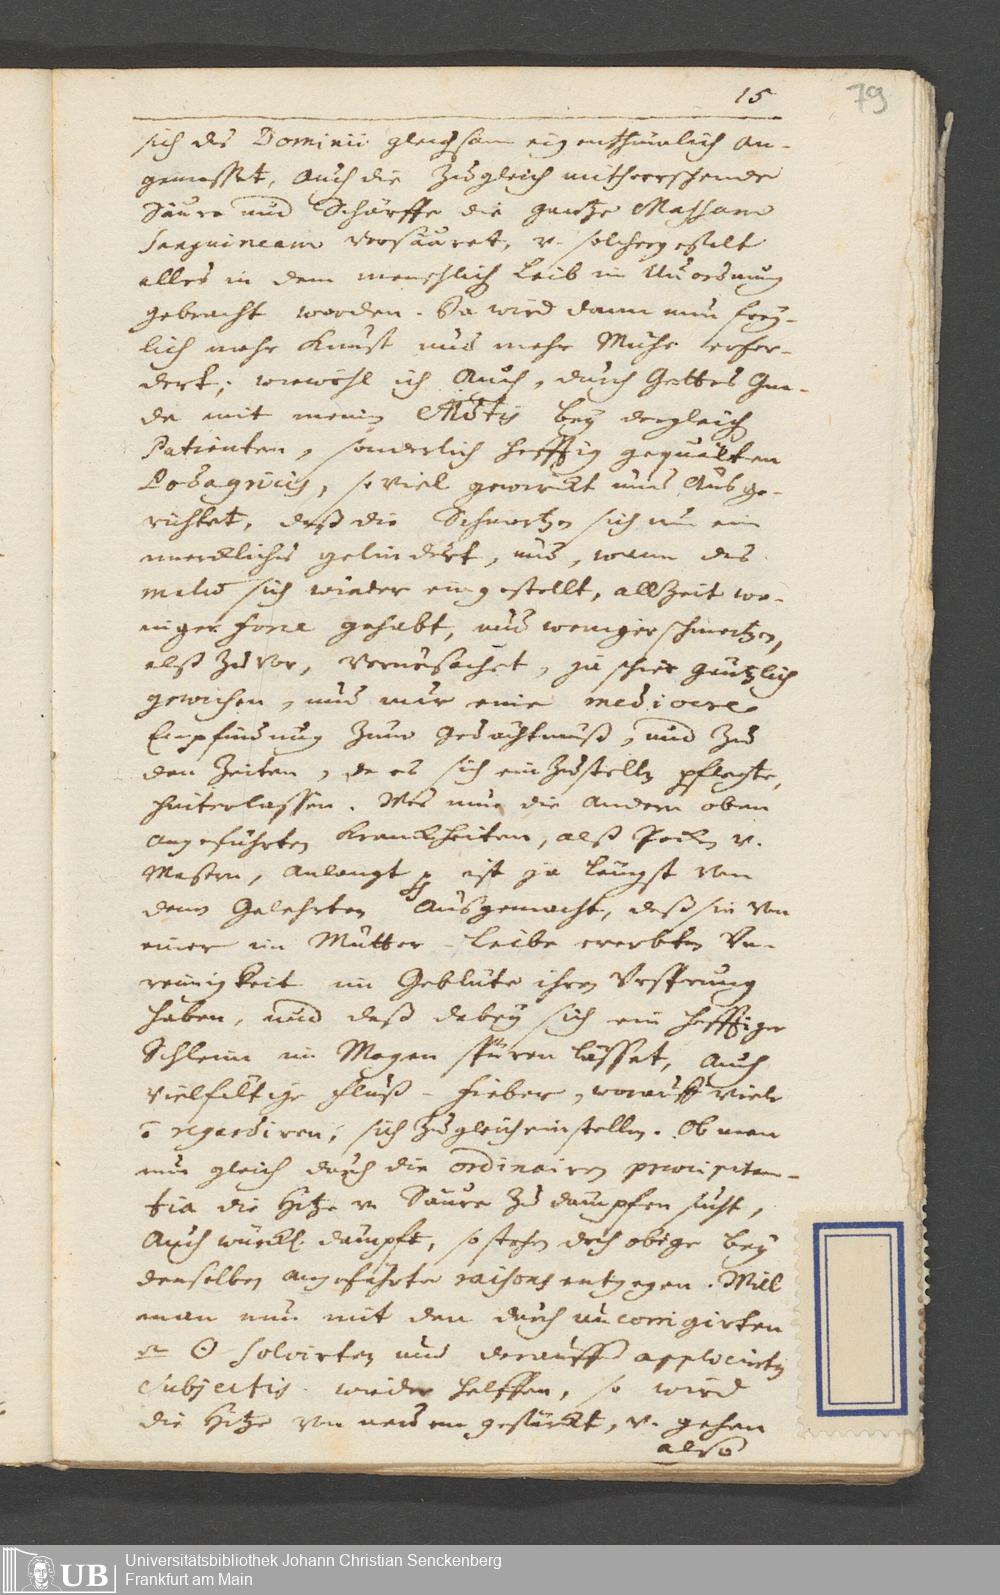 15
79
sich des Dominii gleichsam eigenthümlich an-
gemasset, auch die zugleich mitherrschende
Säure und Schärffe die gantze Massam
Sanguineam versäuret, v. solchergestalt
alles in dem menschlich Leib in Unordnung
gebracht worden. Da wird dann nun frey-
lich mehr Kunst und mehr Mühe erfor-
dert; wiewohl ich auch, durch Gottes Gna-
de mit meinen bey dergleich
Patienten, sonderlich hefftig gequälten
Podagricis, so viel gewirckt und ausge-
richtet, daß die Schmertzen sich um ein
merckliches gelindert, und, wann das
malum sich wieder eingestellt, allzeit we-
niger force gehabt, und weniger schmertzen,
alß zuvor, verursachet, ja schier gäntzlich
gewichen, und nur eine mediocre
Empfindung zum Gedächtnuß, und zu
den Zeiten, da es sich einzustellen pflegte,
hinterlassen. Was nun die andern oben
angeführten Kranckheiten, alß Pocken v.
Masern, anlangt so ist ja längst von
denen Gelehrten ausgemacht, daß sie von
einer im Mutter-Leibe ererbten Un-
reinigkeit im Geblüte ihren Ursprung
haben, und daß dabey sich ein hefftiger
Schleim im Magen spüren lässet, auch
vielfältige Fluß-Fieber, worauff viele
regardiren, sich zugleich einstellen. Ob man
nun gleich durch die ordinairen præcipitan-
tia die Hitze v. Säure zu dämpfen sucht,
auch würckl. dämpft, so stehen doch obige bey
denselben angeführte raisons entgegen. Will
man nun mit den durch uncorrigirten
☉ solvirten und darauff applicirten
Subjectis wieder helffen, so wird
die Hitze von neuem gestärckt, v. gehen
also
UB
Universitätsbibliothek Johann Christian Senckenberg
Frankfurt am Main